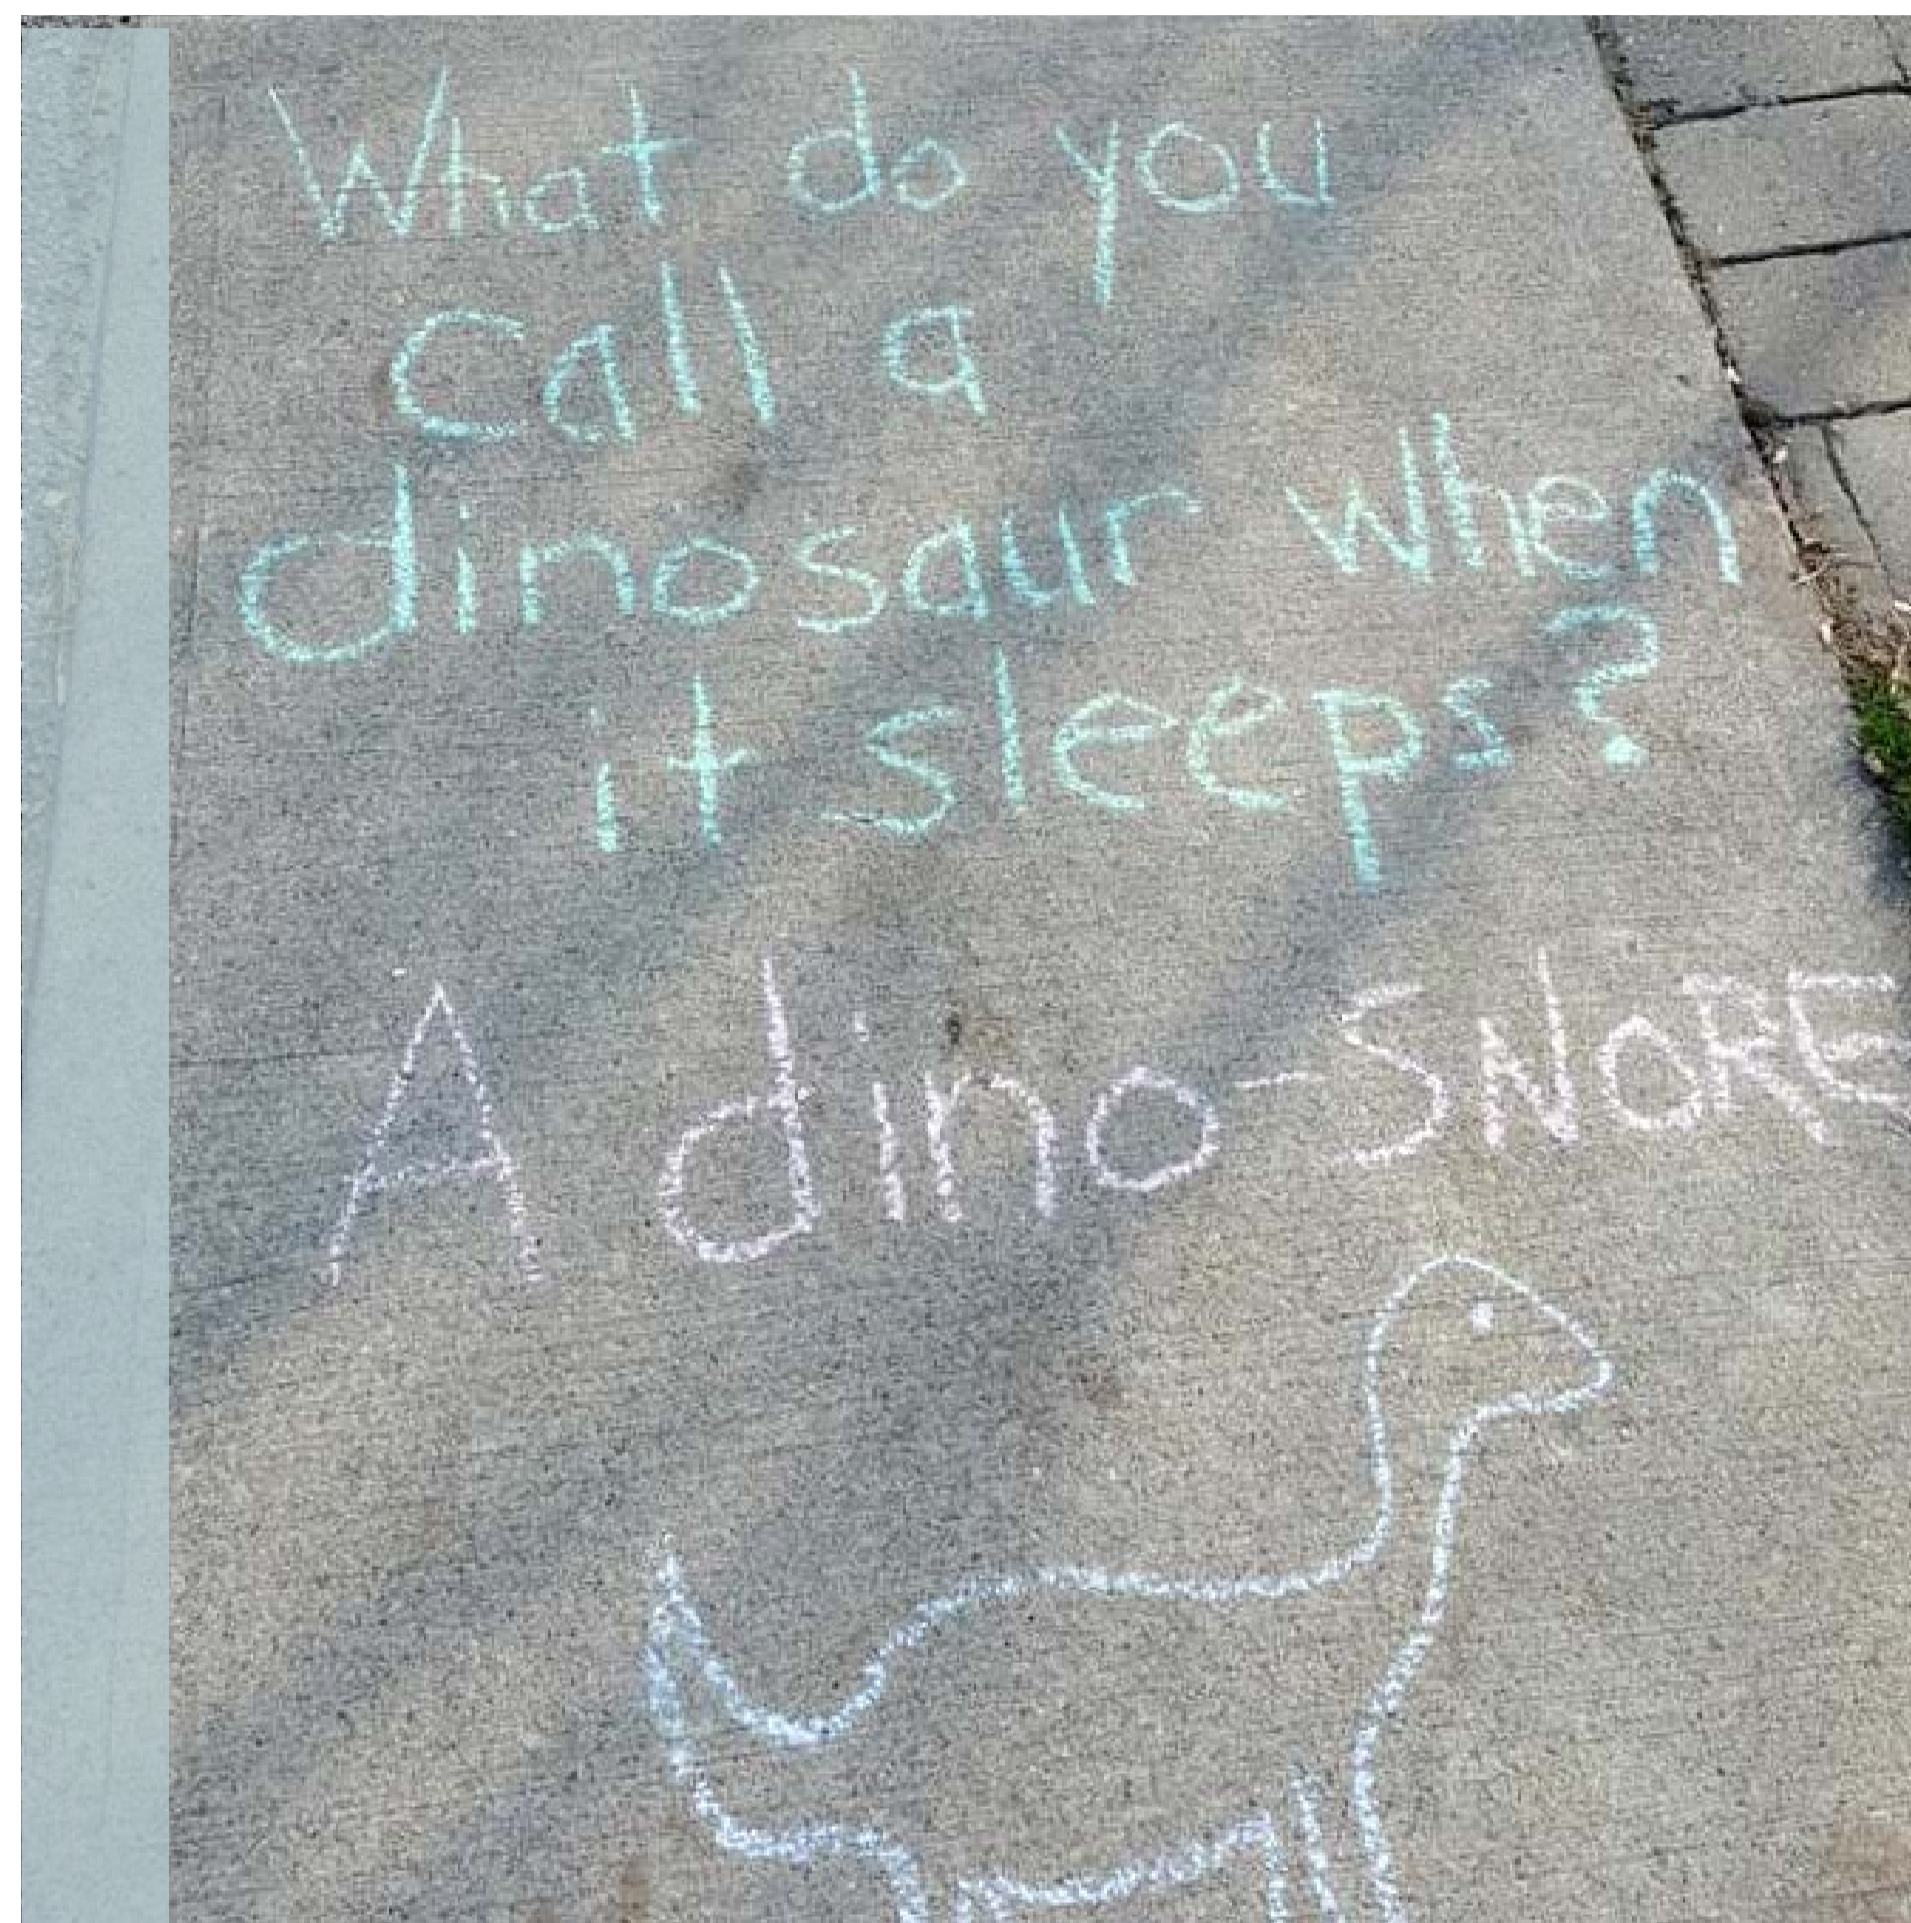 What do you
Call a
dinosaur when
it sleeps?
A dino-SNORE